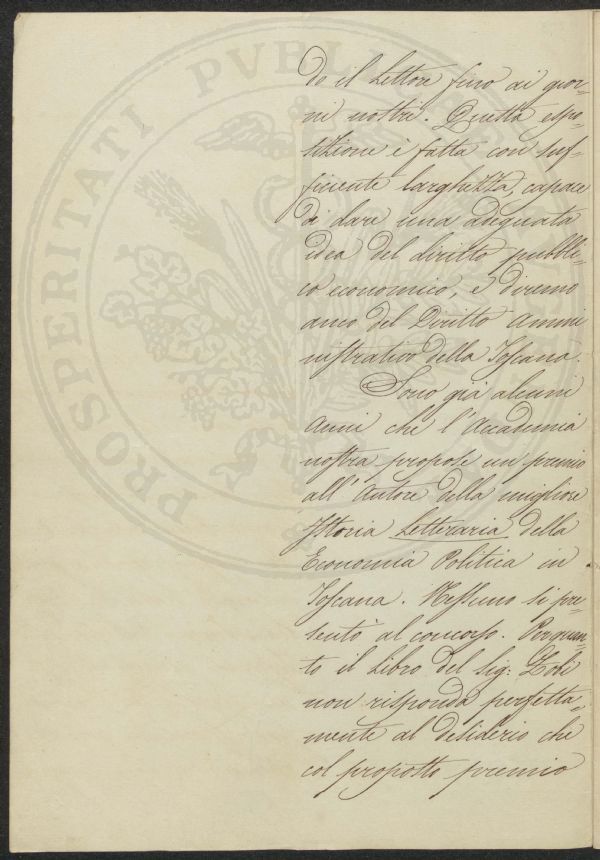 PROSPERITATI PVBLI
do il Lettore fino ai gior=
ni nostri. Questa espo=
sizione è fatta con suf=
ficiente larghezza, capace
di dare una adeguata
idea del diritto pubbli=
co economico, e diremo
anco del Diritto Ammi
nistrativo della Toscana.
Sono già alcuni
Anni che l'Accademia
nostra propose un premio
all'Autore della migliore
Istoria Letteraria della
Economia Politica in
Toscana. Nessuno si pre=
sentò al concorso. Perquan=
to il Libro del Sig: Zobi
non risponda perfetta=
mente al desiderio che
col proposto premio